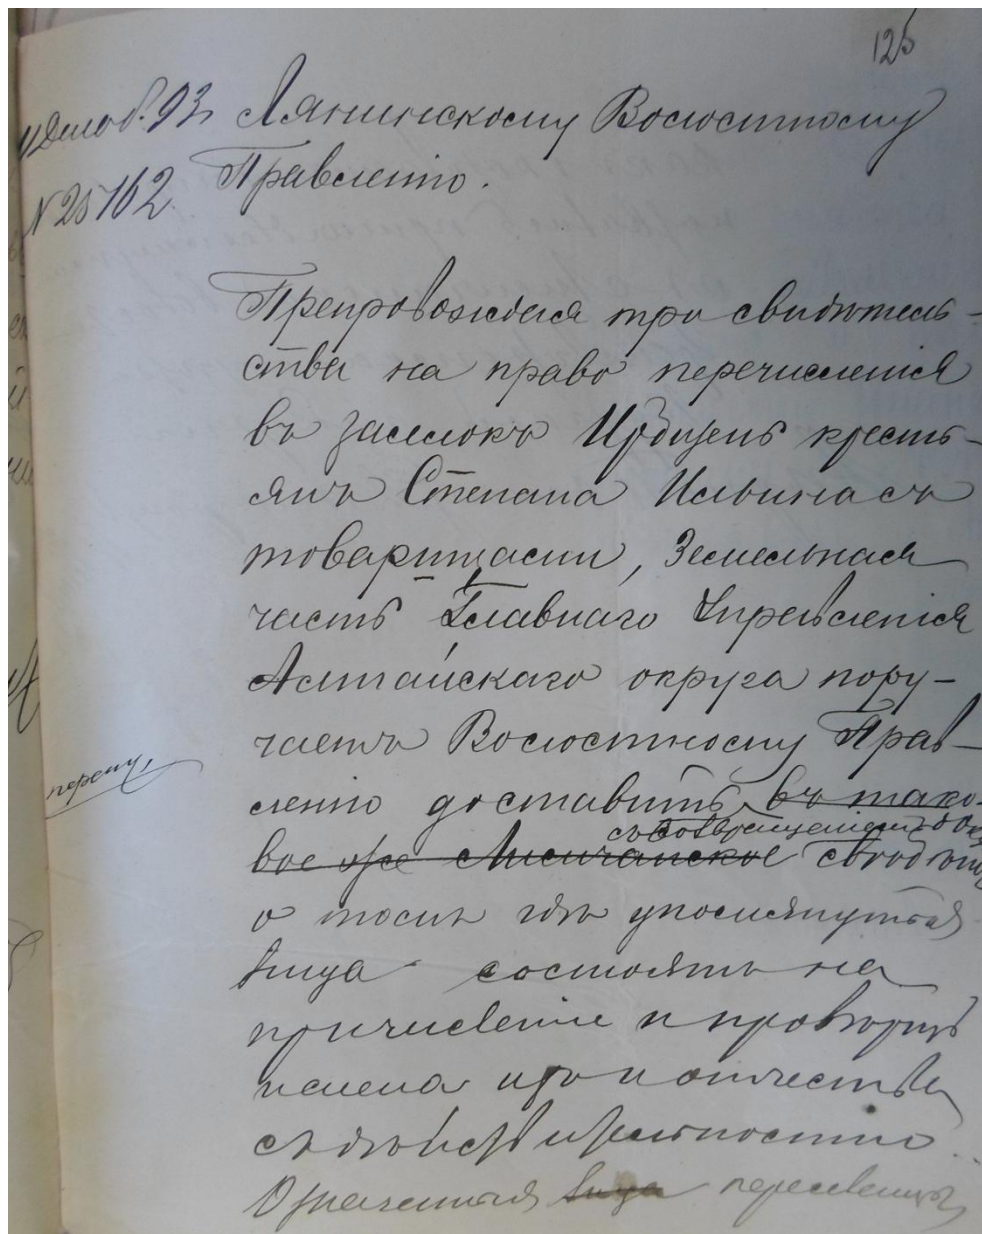 125
11 Декаб. 93 Лянинскому Волостному
№ 25162 Правленію.
Препровождая три свидѣтель-
ства на право перечисленія
въ заселокъ Урбизень кресть-
янъ Степана Ильина съ
товарищами, Земельная
часть Главнаго Управленія
Алтайскаго округа пору-
чаетъ Волостному Прав-
ленію доставить въ тако-
съ возвращеніемъ
вое же свѣдѣнія
о томъ гдѣ упомянутыя
лица состоятъ на
причисленіи и провѣрить
имена ихъ и отчества
съ дѣйствительностію
Означенныя лица переселенцы